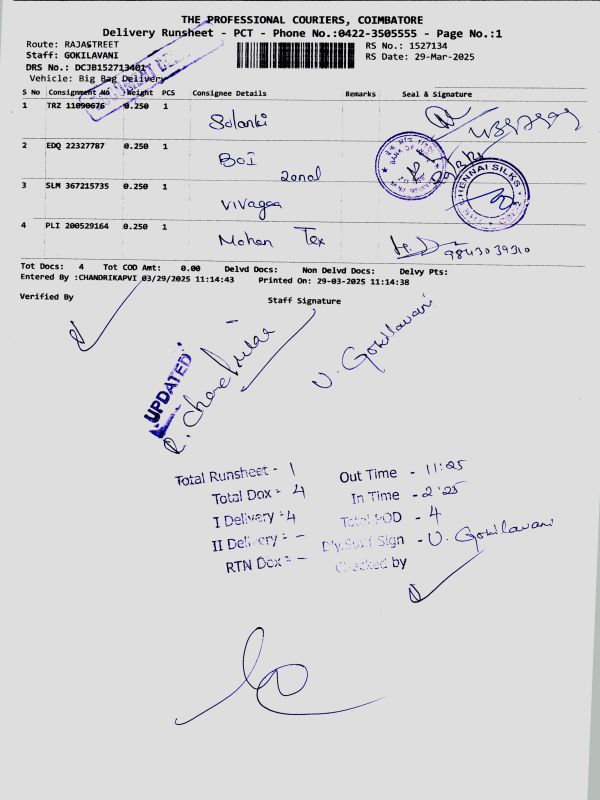 THE PROFESSIONAL COURIERS, COIMBATORE
Delivery Runsheet - PCT - Phone No.:0422-3505555 - Page No.:1
Route: RAJASTREET
RS No.: 1527134
Staff: GOKILAVANI
RS Date: 29-Mar-2025
DRS No.: DCJB152713401
Vehicle: Big Bag Delivery
S No Consignment No Weight PCS Consignee Details Remarks Seal & Signature
1 TRZ 11090676 0.250 1 Solanki
2 EDQ 22327787 0.250 1 BOI zonal
3 SLM 367215735 0.250 1 Vivagaa
4 PLI 200529164 0.250 1 Mohan Tex 9843039310
BANK OF
CHENNAI SILKS
Tot Docs: 4 Tot COD Amt: 0.00 Delvd Docs: Non Delvd Docs: Delvy Pts:
Entered By :CHANDRIKAPVI 03/29/2025 11:14:43 Printed On: 29-03-2025 11:14:38
Verified By Staff Signature
UPDATED
U. Gokilavani
Total Runsheet - 1 Out Time - 11:25
Total Dox - 4 In Time - 2:25
I Delivery - 4 Total POD - 4
II Delivery - – Dly.Staff Sign - U. Gokilavani
RTN Dox - – Checked by